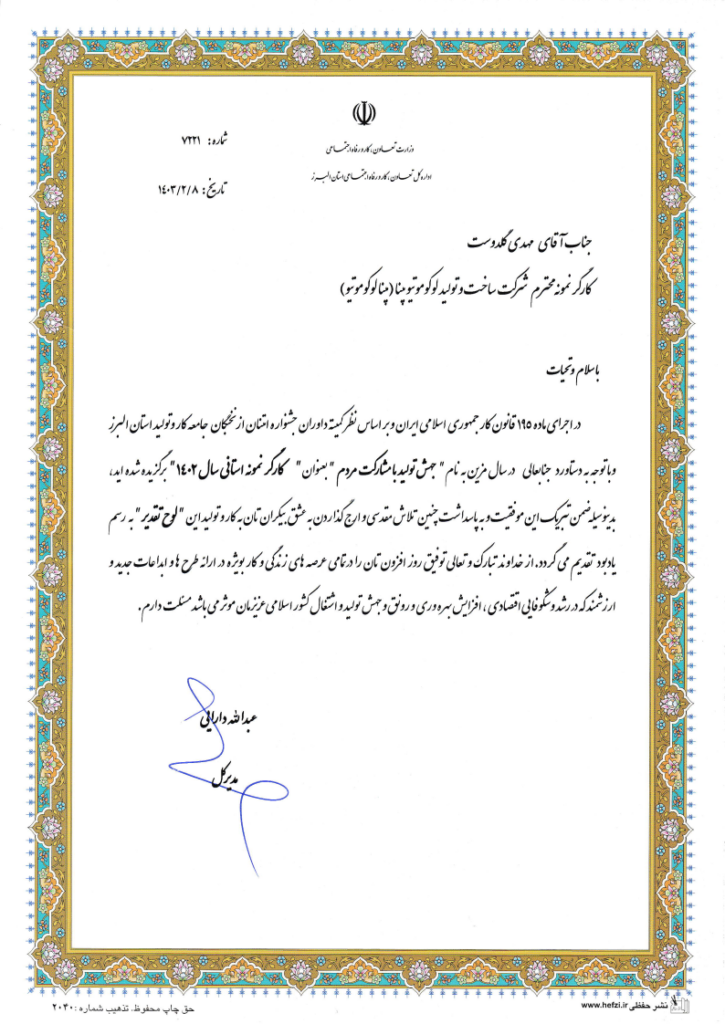 وزارت تعاون، کار و رفاه اجتماعی
اداره کل تعاون، کار و رفاه اجتماعی استان البرز
شماره: ۷۲۲۱
تاریخ: ۱۴۰۳/۲/۸
جناب آقای مهدی گلدوست
کارگر نمونه محترم شرکت ساخت و تولید لوکوموتیو مپنا (مپنا لوکوموتیو)
با سلام و تحیات
در اجرای ماده ۱۹۵ قانون کار جمهوری اسلامی ایران و بر اساس نظر کمیته داوران جشنواره امتنان از نخبگان جامعه کار و تولید استان البرز
و با توجه به دستاورد جنابعالی در سال مزین به نام "جهش تولید با مشارکت مردم" بعنوان "کارگر نمونه استانی سال ۱۴۰۲" برگزیده شده اید،
بدینوسیله ضمن تبریک این موفقیت و به پاسداشت چنین تلاش مقدسی و ارج گذاردن به عشق بیکران تان به کار و تولید این "لوح تقدیر" به رسم
یادبود تقدیم می گردد. از خداوند تبارک و تعالی توفیق روز افزون تان را در تمامی عرصه های زندگی و کار بویژه در ارائه طرح ها و ابداعات جدید و
ارزشمند که در رشد و شکوفایی اقتصادی، افزایش بهره وری و رونق و جهش تولید و اشتغال کشور اسلامی عزیزمان موثر می باشد مسئلت دارم.
عبدالله دارایی
مدیرکل
حق چاپ محفوظ. تذهیب شماره: ۲۰۳۰
نشر حفظی www.hefzi.ir